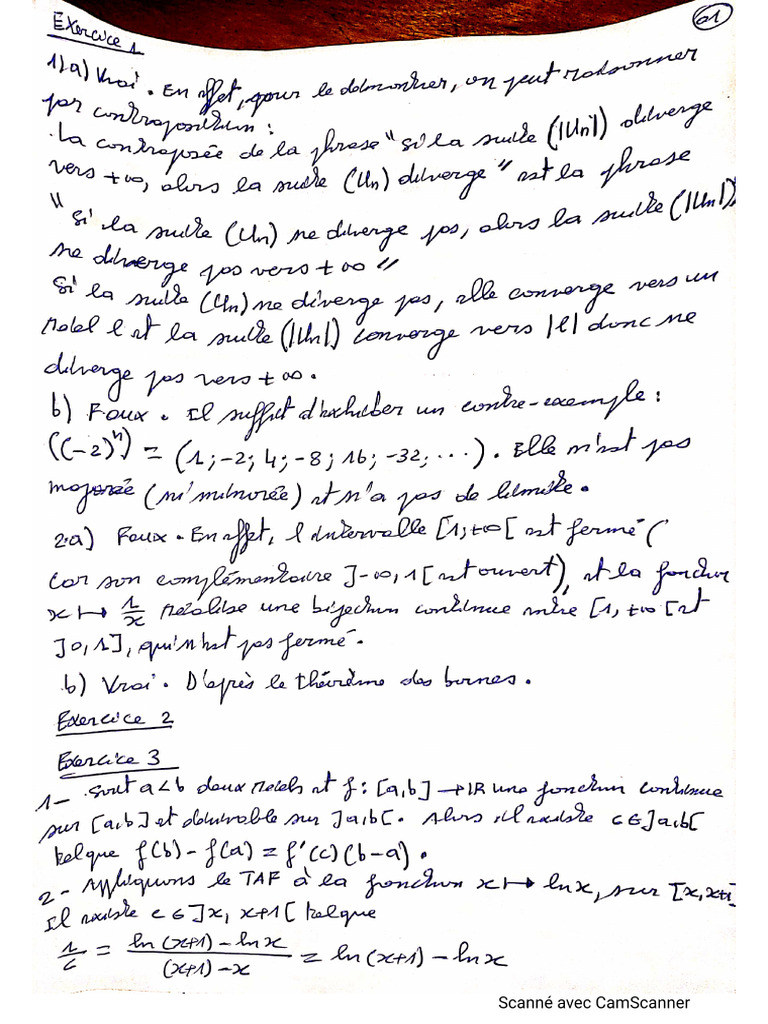 01
Exercice 1
1) a) Vrai. En effet, pour le démontrer, on peut raisonner
par contraposition:
La contraposée de la phrase "si la suite (|Un|) diverge
vers +∞, alors la suite (Un) diverge" est la phrase
"Si la suite (Un) ne diverge pas, alors la suite (|Un|)
ne diverge pas vers +∞"
Si la suite (Un) ne diverge pas, elle converge vers un
réel l et la suite (|Un|) converge vers |l| donc ne
diverge pas vers +∞.
b) Faux. Il suffit d'exhiber un contre-exemple:
((-2)ⁿ) = (1; -2; 4; -8; 16; -32; ...). Elle n'est pas
majorée (ni minorée) et n'a pas de limite.
2.a) Faux. En effet, l'intervalle [1, +∞[ est fermé (
car son complémentaire ]-∞, 1[ est ouvert), et la fonction
x ↦ 1/x réalise une bijection continue entre [1, +∞[ et
]0, 1], qui n'est pas fermé.
b) Vrai. D'après le théorème des bornes.
Exercice 2
Exercice 3
1- Soit a<b deux réels et f: [a,b] → IR une fonction continue
sur [a,b] et dérivable sur ]a,b[. Alors il existe c∈]a,b[
tel que f(b) - f(a) = f'(c)(b-a).
2- Appliquons le TAF à la fonction x ↦ ln x, sur [x, x+1]
Il existe c ∈ ]x, x+1[ tel que
1/c = (ln(x+1) - ln x)/((x+1) - x) = ln(x+1) - ln x
Scanné avec CamScanner